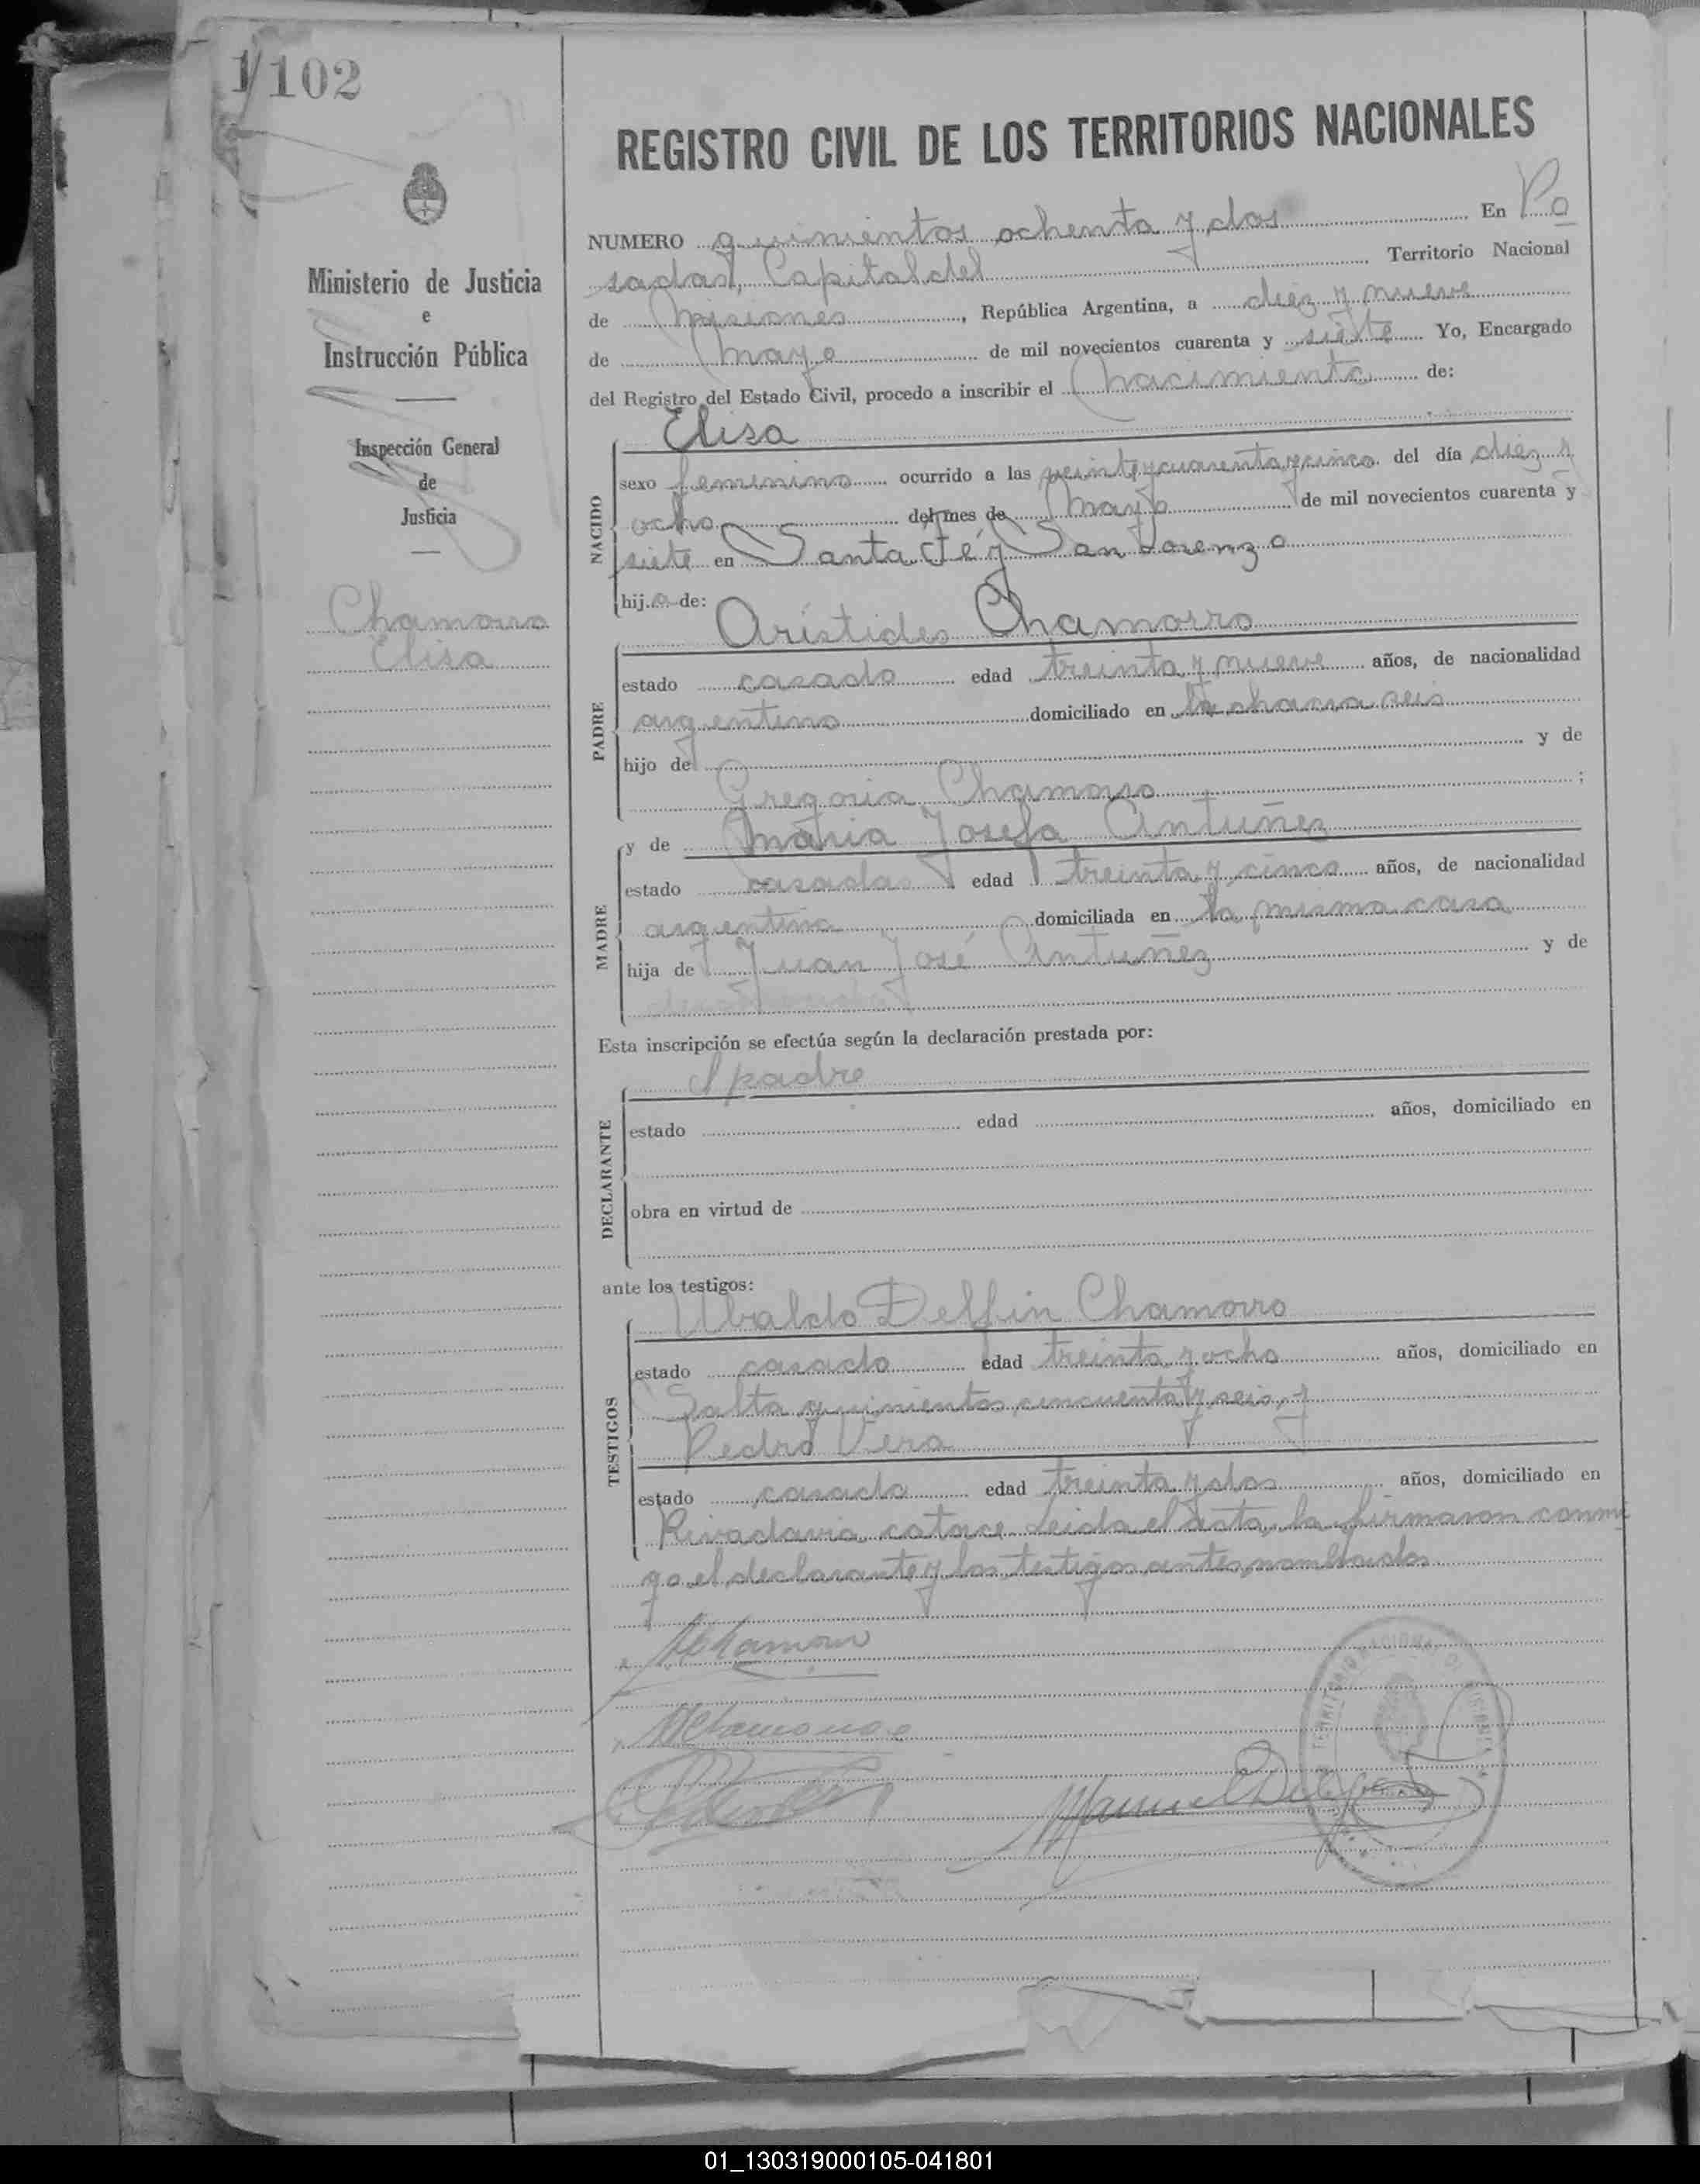 1/102
REGISTRO CIVIL DE LOS TERRITORIOS NACIONALES
Ministerio de Justicia
e
Instrucción Pública
Inspección General
de
Justicia
Chamorro
Elisa
NUMERO quinientos ochenta y dos En Po
sadas, Capital del Territorio Nacional
de Misiones, República Argentina, a diez y nueve
de Mayo de mil novecientos cuarenta y siete Yo, Encargado
del Registro del Estado Civil, procedo a inscribir el nacimiento de:
Elisa
NACIDO
sexo femenino ocurrido a las veinte y cuarenta y cinco del día diez y
ocho del mes de Mayo de mil novecientos cuarenta y
siete en Santa Fé y San Lorenzo
hija de:
Arístides Chamorro
PADRE
estado casado edad treinta y nueve años, de nacionalidad
argentino domiciliado en la chacra seis
hijo de y de
Gregoria Chamorro;
y de María Josefa Antuñez
MADRE
estado casada edad treinta y cinco años, de nacionalidad
argentina domiciliada en la misma casa
hija de Juan José Antuñez y de
Esta inscripción se efectúa según la declaración prestada por:
el padre
DECLARANTE
estado edad años, domiciliado en
obra en virtud de
ante los testigos:
Ubaldo Delfin Chamorro
TESTIGOS
estado casado edad treinta y ocho años, domiciliado en
Salta quinientos cincuenta y seis, y
Pedro Vera
estado casado edad treinta y dos años, domiciliado en
Rivadavia catorce. Leida el acta, la firmaron conmi
go el declarante y los testigos antes nombrados
AChamorro
Manuel
01_130319000105-041801